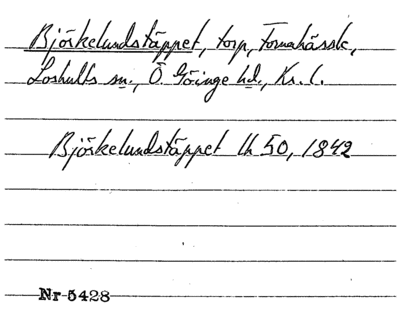 Björkelundstäppet, torp, Tornahässle,
Loshults sn., Ö. Göinge hd., Kr. l.
Björkelundstäppet lh 50, 1842
Nr 5428